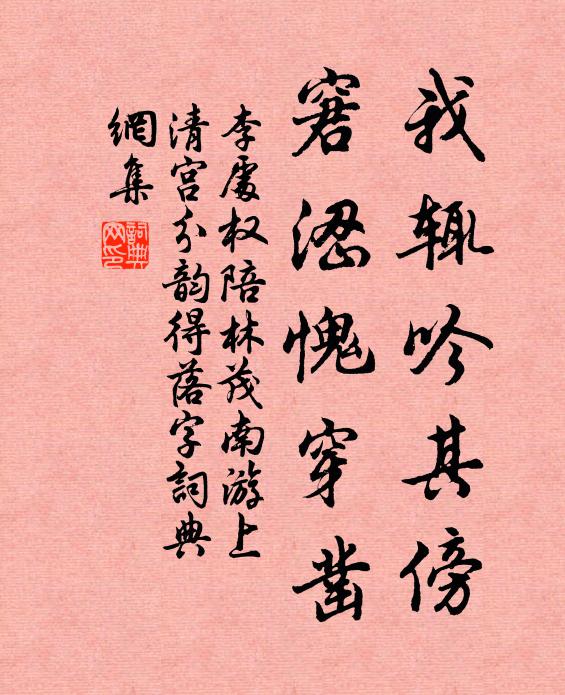 我辄吟其傍
窘涊愧穿凿
李處权陪林茂南游上
清宫分韵得落字詞典
網集
詞典
网印